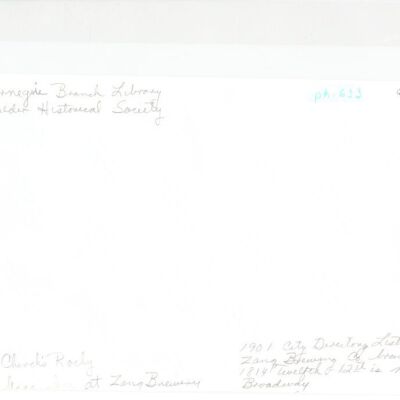 rnegie Branch Library
ulder Historical Society
ph.611
Church's Rocky
at Zang Brewery
1901 City Directory List
Zang Brewing Co bran
1814 twelfth & 12th is n
Broadway